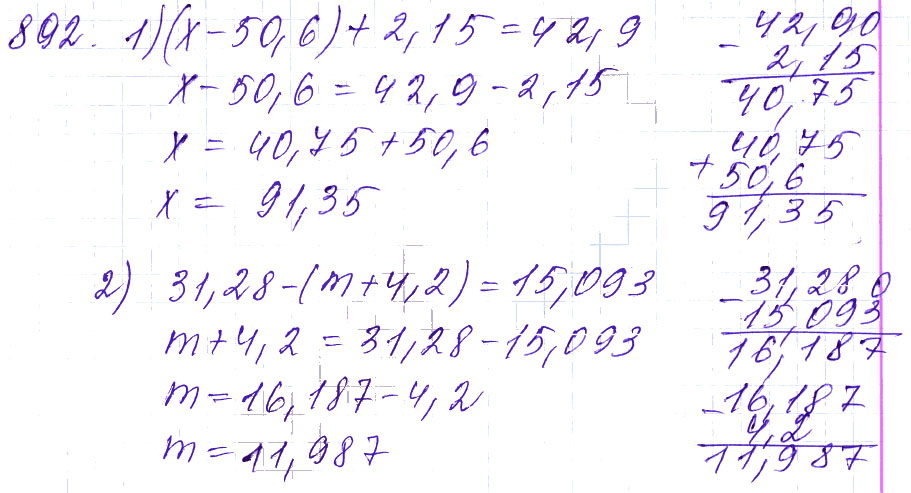 892. 1) (x - 50,6) + 2,15 = 42,9
x - 50,6 = 42,9 - 2,15
x = 40,75 + 50,6
x = 91,35
- 42,90
2,15
40,75
+ 40,75
50,6
91,35
2) 31,28 - (m + 4,2) = 15,093
m + 4,2 = 31,28 - 15,093
m = 16,187 - 4,2
m = 11,987
- 31,280
15,093
16,187
- 16,187
4,2
11,987